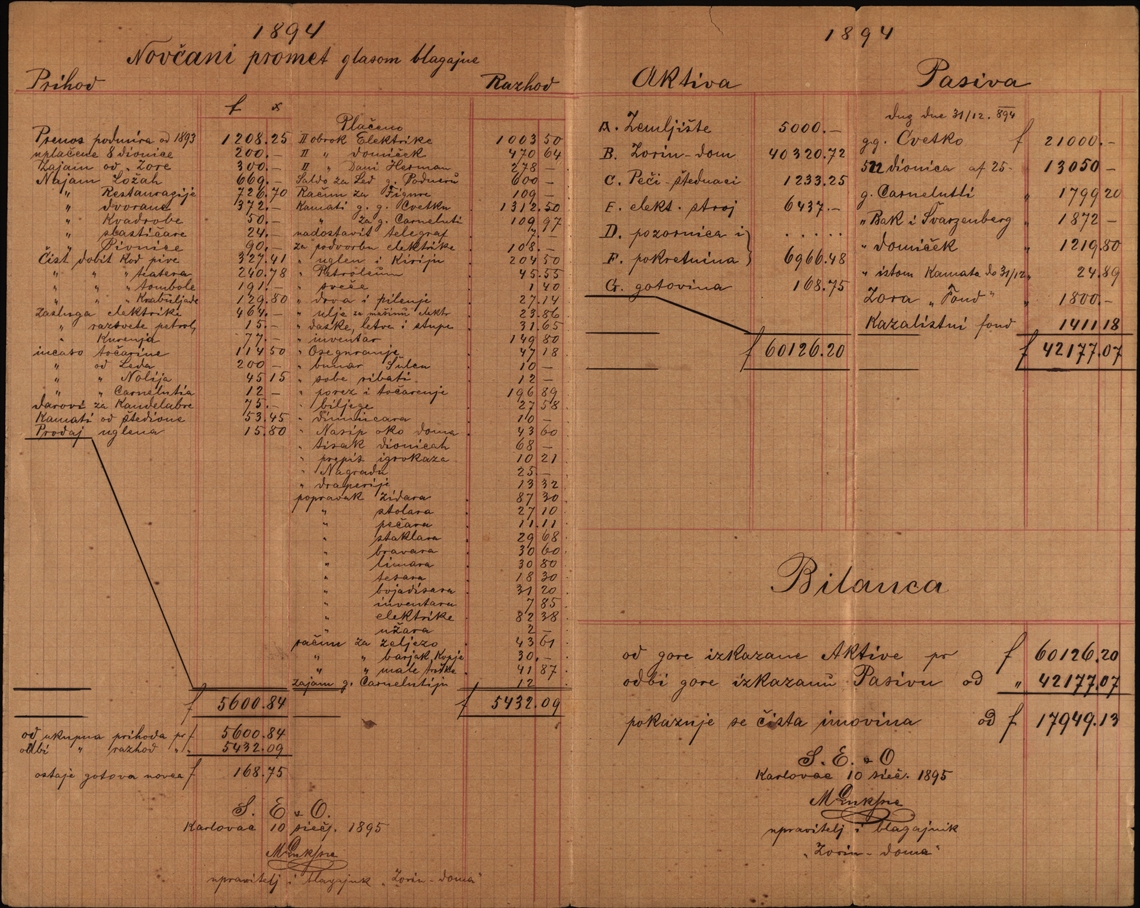 1894
Novčani promet glasom blagajne
Prihod
Razhod
f x
Prenos podmira od 1893 1208.25
uplaćene 8 dionice 200.-
Zajam od „Zore 300.-
Najam Ložah 669.-
„ Restauracije 726.70
„ dvorane 372.-
„ Kvadrobe 50.-
„ slastičare 24.-
„ Pivnice 90.-
Čist dobit kod pive 327.41
„ „ „ teatera 240.78
„ „ „ tombole 191.-
„ „ „ 129.80
Zasluga elektrike 464.-
„ razsvete petrol, 15.-
„ Kurenja 77.-
incaso točarine 114 50
„ od Leda 200 -
„ „ Nolija 45 15
„ „ Carnelutia 12 -
Darovi za Kandelabre 75.-
Kamati od štedione 53.45
Prodaj uglena 15.80
f 5600.84
Plaćeno
II obrok Elektrike 1003 50
II „ Domiček 470 64
II „ Dani Herman 278 -
Saldo za Led g. 600 -
Račun za 109 -
Kamati g. g. Cvetku 1312.50
„ za g. Carneluti 109 97
nadostavit telegraf 7
za podvorbu elektrike 108.-
„ uglen i Kiriju 204 50
„ Petroleum 45.55
„ sveće 1 40
„ drva i pilenje 27.14
„ ulje za mašinu elektr 23.86
„ daske, letve i stupe 31.65
„ inventar 149 80
„ Osegnranje 47 18
„ bunar 10 -
„ sobe ribati 12 -
„ porez i točarenje 196 89
„ biljege 27 58
„ dimničara 10 -
„ Nasip oko doma 43 60
„ tisak dionicah 68 -
„ prepis igrokaza 10 21
„ Nagradu 25.-
„ draperije 13 32
popravak zidara 87 30
„ stolara 27 10
„ pečara 11.11
„ staklara 29 68
„ bravara 30 60
„ limara 30 80
„ tesara 18 30
„ bojadisara 31 20
„ inventara 7 85
„ elektrike 82 38
„ užara 2 -
račun za željezo 43 61
„ „ barjak, Koplje 30.-
„ „ male 41 87
Zajam g. Carnelutiju 12
f 5432.09
od ukupna prihoda pr f 5600.84
odbi „ razhod „ „ 5432.09
ostaje gotova novca f 168.75
S. E & O.
Karlovac 10 sieč. 1895
upravitelj i blagajnik „Zorin-doma“
1894
Aktiva
A. Zemljište 5000.-
B. Zorin-dom 40320.72
C. Peći - štednaci 1233.25
E. elekt. stroj 6437.-
D. pozornica i . . . . .
F. pokretnina 6966.48
G. gotovina 168.75
f 60126.20
Pasiva
dug dne 31/12. 894
gg. Cvetko f 21000.-
522 dionica af 25- 13050 -
g. Carnelutti 1799 20
„ Bak i Švarzenberg 1872 -
„ Domiček 1219.80
„ istom Kamata do 31/12 24.89
Zora „Fond“ 1800.-
Kazalištni fond 1411.18
f 42177.07
Bilanca
od gore izkazane Aktive pr f 60126.20
odbi gore izkazanu Pasivu od „ 42177.07
pokaznje se čista imovina od f 17949.13
S. E. & O
Karlovac 10 sieč. 1895
upravitelj i blagajnik
„Zorin-doma“